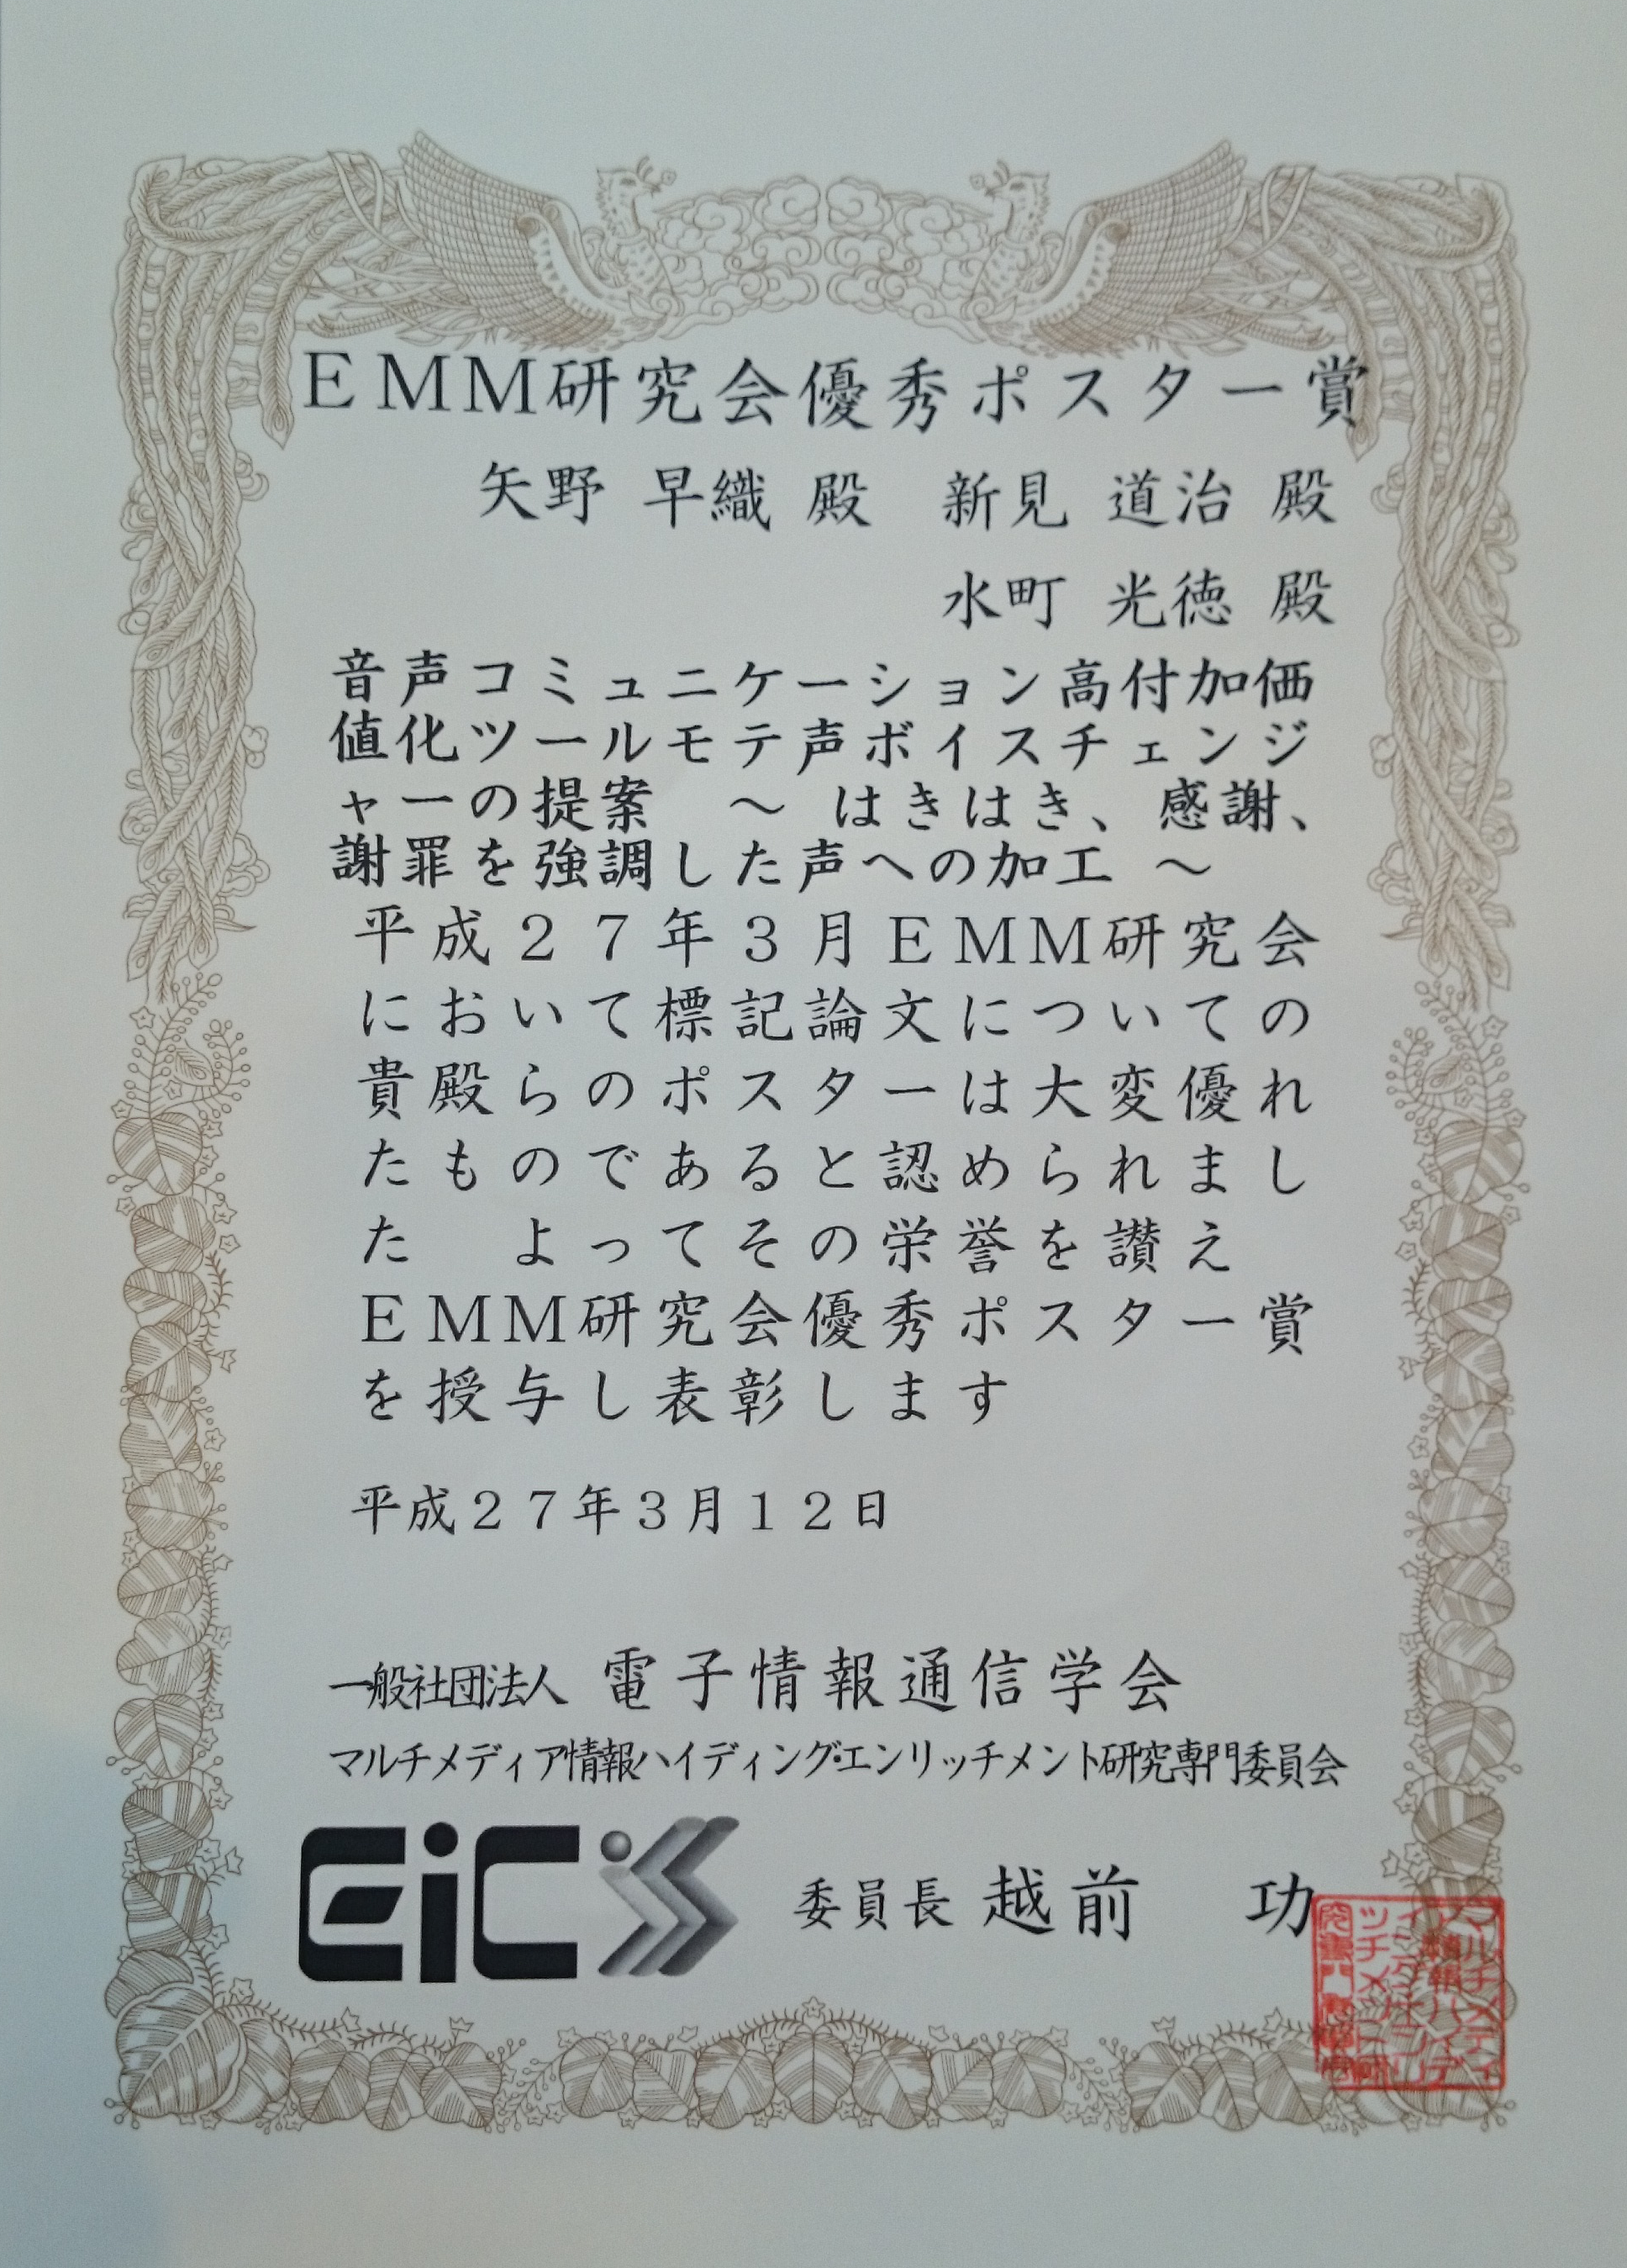 ＥＭＭ研究会優秀ポスター賞
矢野 早織 殿　新見 道治 殿
水町 光徳 殿
音声コミュニケーション高付加価
値化ツールモテ声ボイスチェンジ
ャーの提案　～ はきはき、感謝、
謝罪を強調した声への加工 ～
平成２７年３月ＥＭＭ研究会
において標記論文についての
貴殿らのポスターは大変優れ
たものであると認められまし
た　よってその栄誉を讃え
ＥＭＭ研究会優秀ポスター賞
を授与し表彰します
平成２７年３月１２日
一般社団法人 電子情報通信学会
マルチメディア情報ハイディング・エンリッチメント研究専門委員会
EiC
委員長 越前　功